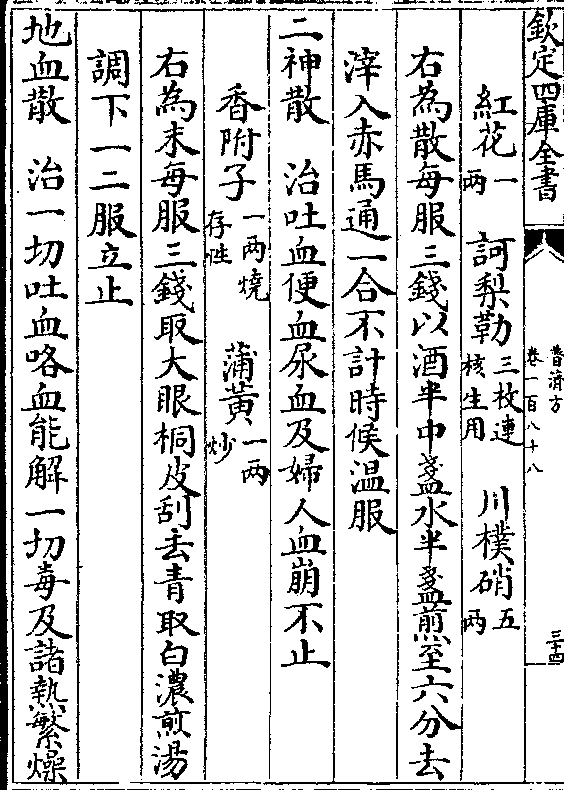 欽定四庫全書
普濟方
卷一百八十八
三十四
紅花一兩 訶梨勒三枚連核生用 川樸硝五兩
右為散每服三錢以酒半中盞水半盞煎至六分去
滓入赤馬通一合不計時候温服
二神散 治吐血便血尿血及婦人血崩不止
香附子一兩燒存性 蒲黄一兩炒
右為末每服三錢取大眼桐皮刮去青取白濃煎湯
調下一二服立止
地血散 治一切吐血咯血能解一切毒及諸熱繁燥